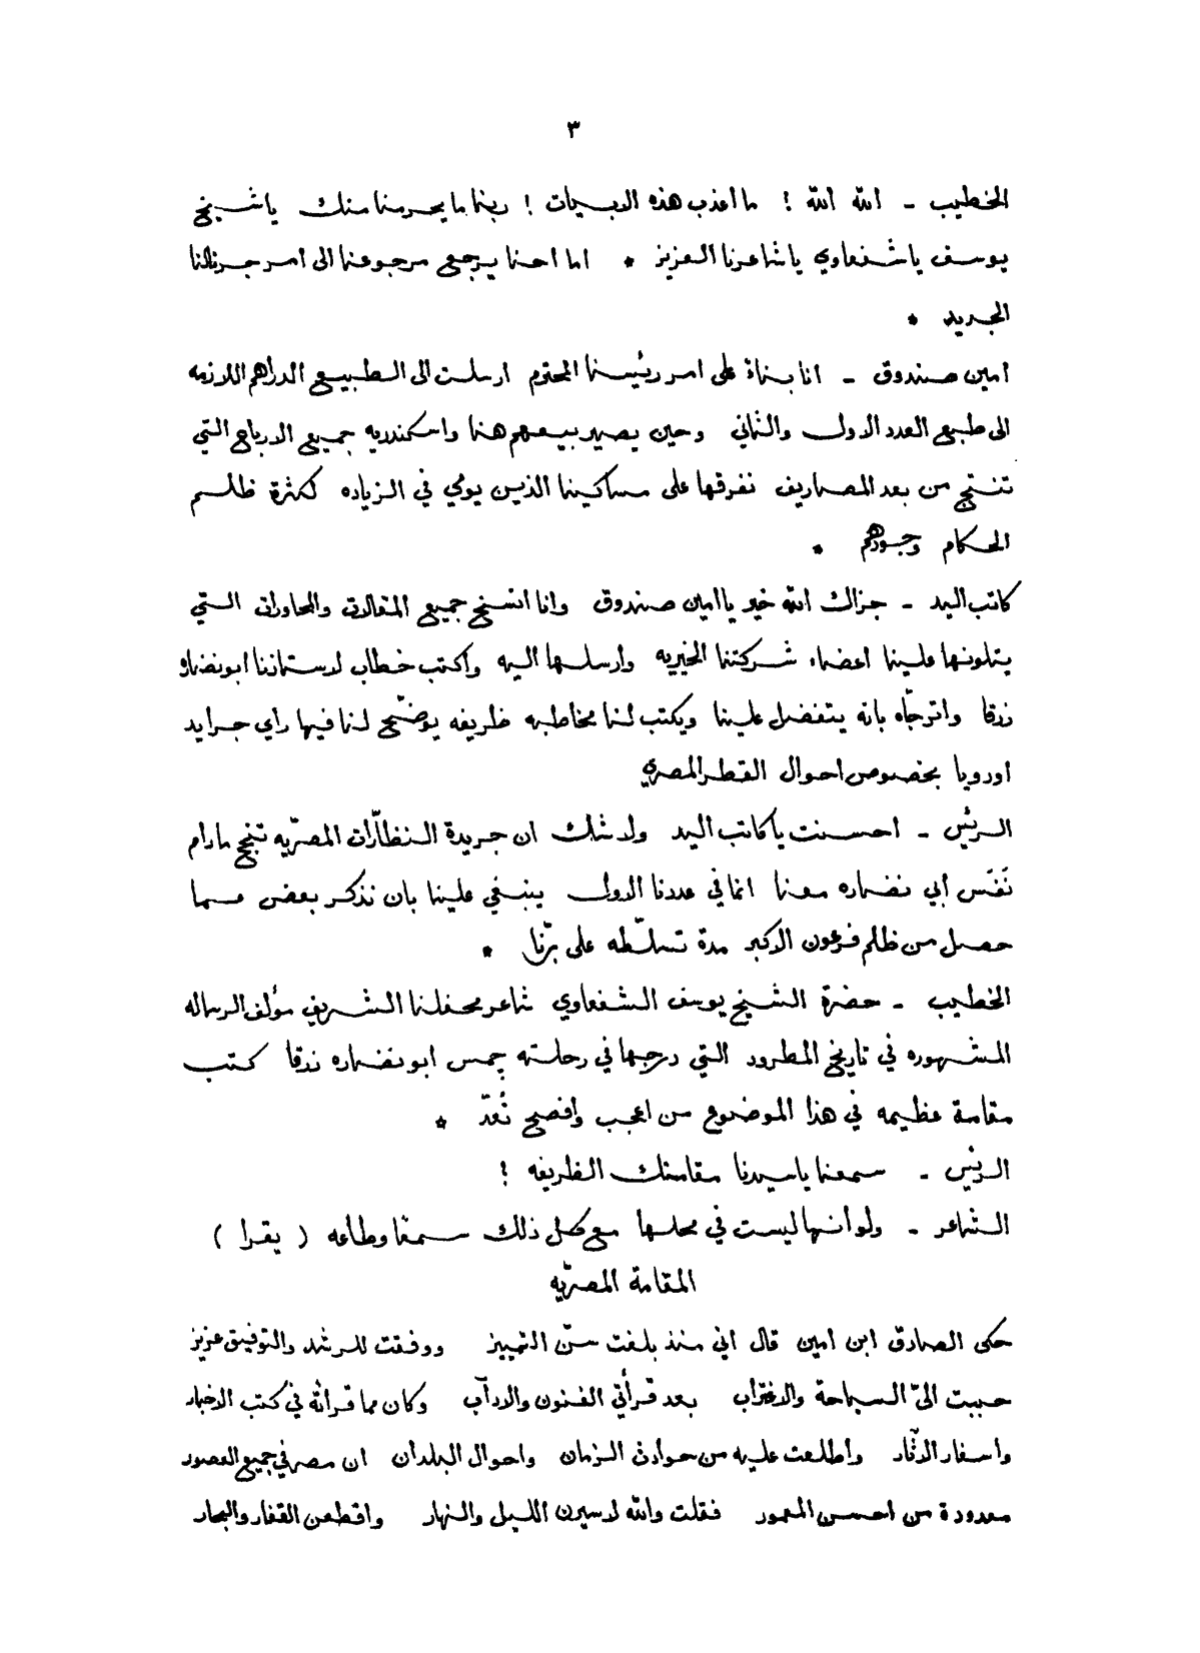 ٣
الخطيب - الله الله ! ما اعذب هذه الابيات ! ربنا ما يحرمنا منك ياشيخ
يوسف ياشفعاوي ياشاعرنا العزيز * اما احنا يرجع مرجوعنا الى امر جرنالنا
الجديد *
امين صندوق - انا بناءً على امر رئيسنا المحترم ارسلت الى الطبيع الدراهم اللازمه
الى طبع العدد الاول والثاني وحين يصير بيعهم هنا واسكندريه جميع الارباح التي
تنتج من بعد المصاريف نفرقها على مساكيننا الذين يومي في الزياده لكثرة ظلم
الحكام وجورهم *
كاتب اليد - جزاك الله خير ياامين صندوق وانا انسخ جميع المقالات والمحاورات التي
يتلونها علينا اعضاء شركتنا الخيريه وارسلها اليه واكتب خطاب لاستاذنا ابونضاره
زرقا واترجّاه بانه يتفضل علينا ويكتب لنا مخاطبه ظريفه يوضّح لنا فيها راي جرايد
اوروپا بخصوص احوال القطر المصري
الريّس - احسنت ياكاتب اليد ولاشك ان جريدة النظّارات المصريّه تنجح مادام
نَفَس أبي نضاره معنا انما في عددنا الاول ينبغي علينا بان نذكر بعض مما
حصل من ظلم فرعون الاكبر مدة تسلّطه على برّنا *
الخطيب - حضرة الشيخ يوسف الشفعاوي شاعر محفلنا الشريف مؤلف الرساله
المشهوره في تاريخ المطرود التي درجها في رحلته چمس ابونضاره زرقا كتب
مقامة عظيمه في هذا الموضوع من اعجب وافصح تُعدّ *
الريّس - سمعنا ياسيدنا مقامتك الظريفه !
الشاعر - ولو أنها ليست في محلها مع كل ذلك سمعًا وطاعه ( يقرا )
المقامة المصريّه
حكى الصادق ابن امين قال اني منذ بلغت سنّ التمييز ووفقت للرشد والتوفيق عزيز
حببت اليّ السياحة والاغتراب بعد قرأتي الفنون والاداب وكان مما قراته في كتب الاخبار
واسفار الآثار واطلعت عليه من حوادث الزمان واحوال البلدان ان مصر في جميع العصور
معدودة من احسن المعمور فقلت والله لاسيرن الليل والنهار واقطعن القفار والبحار